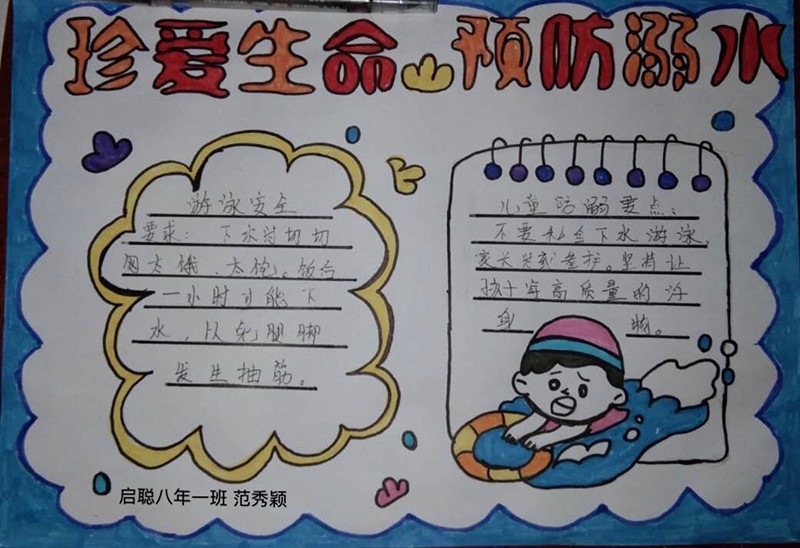 珍爱生命 预防溺水
游泳安全
要求：下水时切切
因太饿、太饱。饭后
一小时才能下
水，以免腿脚
发生抽筋。
儿童防溺要点：
不要私会下水游泳，
家长关或看护。坚持让
孩十穿高质量的浮
身 物。
启聪八年一班 范秀颖